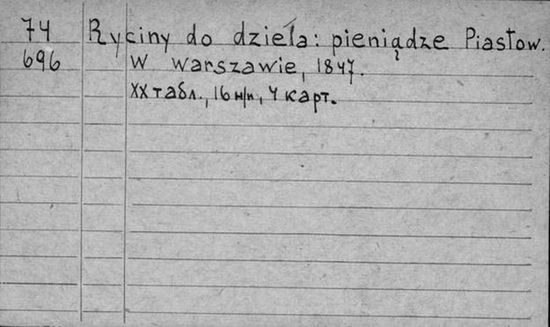 74 Ryciny do dzieła: pieniądze Piastow.
696 W warszawie, 1847.
XX табл., 16 н/п, 4 карт.